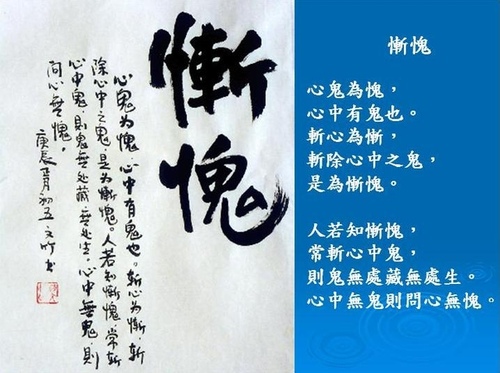 慚愧
心鬼為愧,心中有鬼也。斬心為慚,斬
除心中之鬼,是為慚愧。人若知慚愧,常斬
心中鬼,則鬼無处藏,無处生,心中無鬼,則
問心無愧。
庚辰 月初五文竹
慚愧
心鬼為愧,
心中有鬼也。
斬心為慚,
斬除心中之鬼,
是為慚愧。
人若知慚愧,
常斬心中鬼,
則鬼無處藏無處生。
心中無鬼則問心無愧。